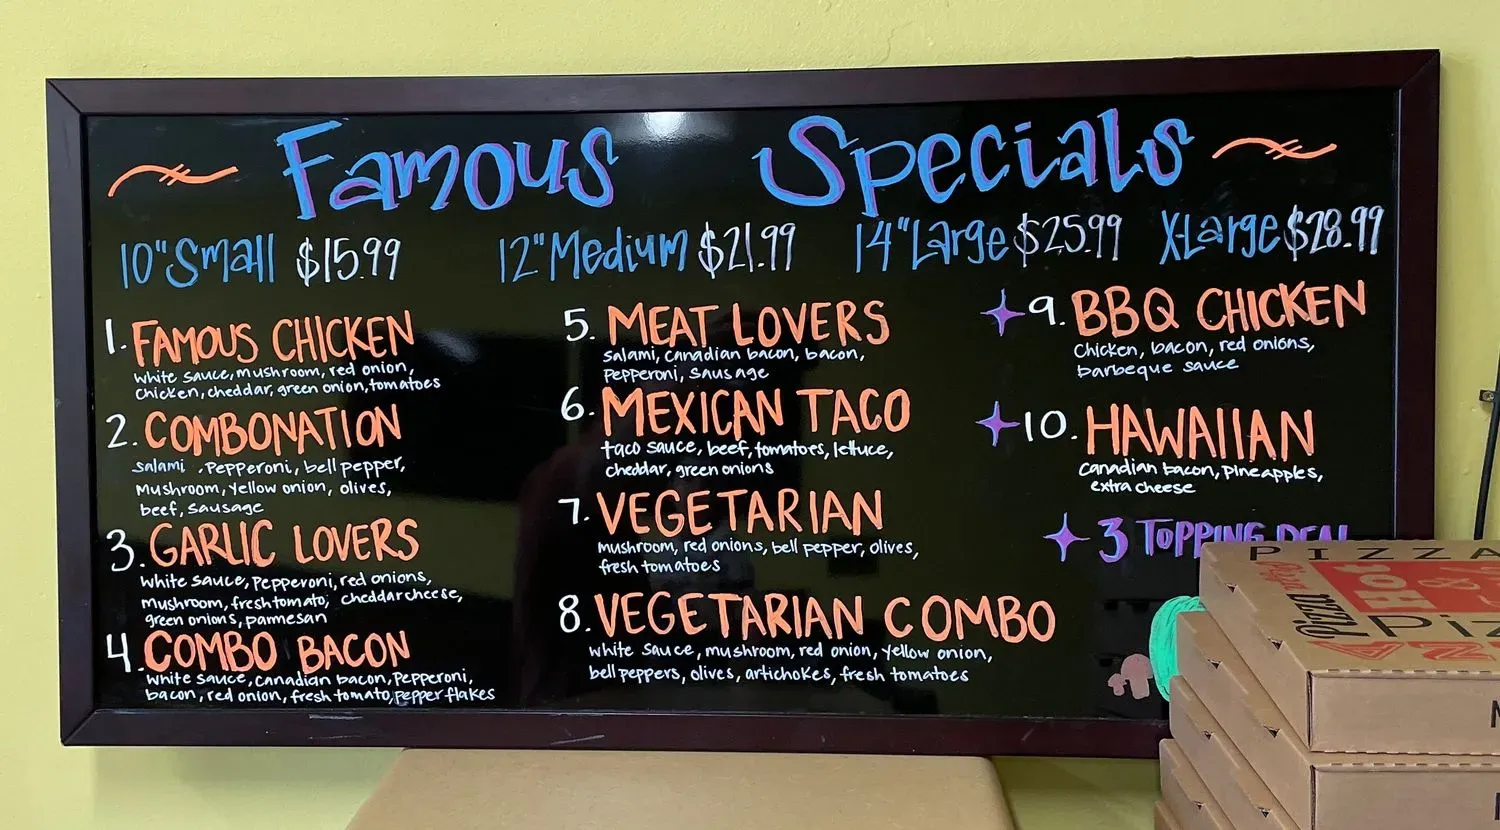 Famous Specials
10" Small $15.99 12" Medium $21.99 14" Large $25.99 X-Large $28.99
1. FAMOUS CHICKEN
white sauce, mushroom, red onion,
chicken, cheddar, green onion, tomatoes
2. COMBONATION
salami , pepperoni, bell pepper,
mushroom, yellow onion, olives,
beef, sausage
3. GARLIC LOVERS
white sauce, pepperoni, red onions,
mushroom, fresh tomato, cheddar cheese,
green onions, parmesan
4. COMBO BACON
white sauce, canadian bacon, pepperoni,
bacon, red onion, fresh tomato, pepper flakes
5. MEAT LOVERS
salami, canadian bacon, bacon,
pepperoni, sausage
6. MEXICAN TACO
taco sauce, beef, tomatoes, lettuce,
cheddar, green onions
7. VEGETARIAN
mushroom, red onions, bell pepper, olives,
fresh tomatoes
8. VEGETARIAN COMBO
white sauce, mushroom, red onion, yellow onion,
bell peppers, olives, artichokes, fresh tomatoes
9. BBQ CHICKEN
Chicken, bacon, red onions,
barbeque sauce
10. HAWAIIAN
canadian bacon, pineapples,
extra cheese
3 TOPPING DEAL
PIZZA
Pizza
HOT
&